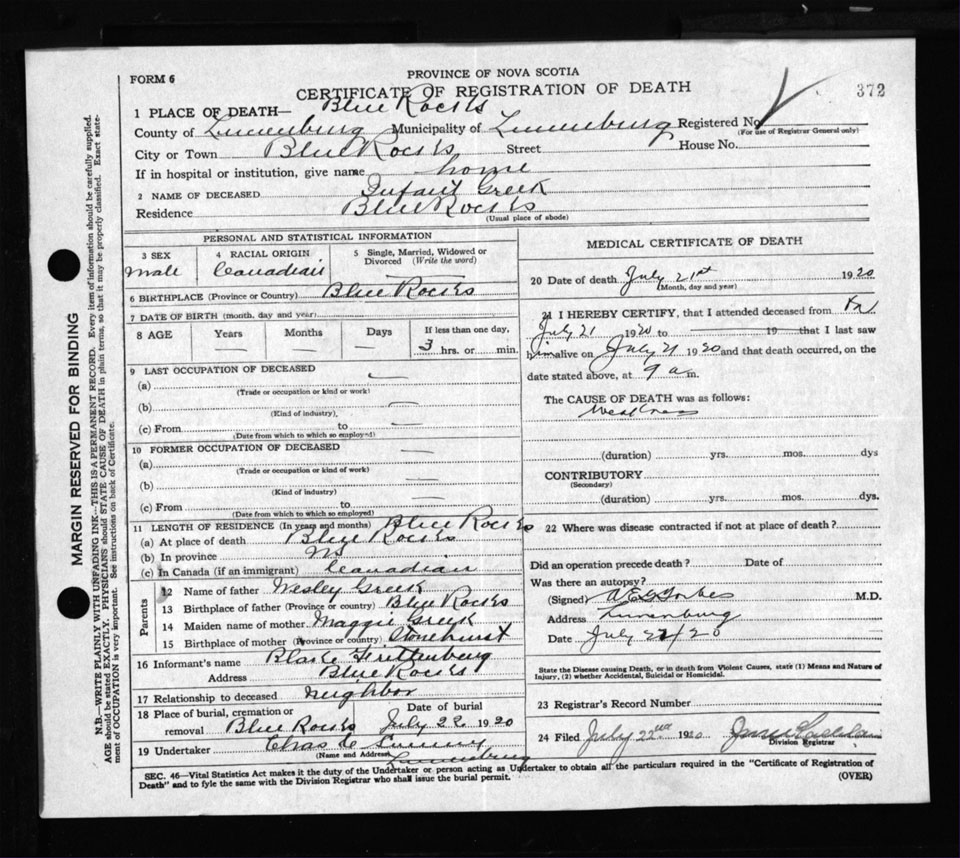 FORM 6
PROVINCE OF NOVA SCOTIA
CERTIFICATE OF REGISTRATION OF DEATH
372
1 PLACE OF DEATH— Blue Rocks
County of Lunenburg Municipality of Lunenburg Registered No.
(For use of Registrar General only)
City or Town Blue Rocks Street House No.
If in hospital or institution, give name home
2 NAME OF DECEASED Infant Greek
Residence Blue Rocks
(Usual place of abode)
PERSONAL AND STATISTICAL INFORMATION
3 SEX 4 RACIAL ORIGIN 5 Single, Married, Widowed or
Divorced (Write the word)
Male Canadian —
6 BIRTHPLACE (Province or Country) Blue Rocks
7 DATE OF BIRTH (month, day and year)
8 AGE Years Months Days If less than one day,
— — — 3 hrs. or min.
9 LAST OCCUPATION OF DECEASED
(a) —
(Trade or occupation or kind or work)
(b) —
(Kind of industry),
(c) From to —
(Date from which to which so employed)
10 FORMER OCCUPATION OF DECEASED —
(a)
(Trade or occupation or kind of work)
(b) —
(Kind of industry)
(c) From to —
(Date from which to which so employed)
11 LENGTH OF RESIDENCE (In years and months) Blue Rocks
(a) At place of death Blue Rocks
(b) In province NS
(c) In Canada (if an immigrant) Canadian
Parents
12 Name of father Wesley Greek
13 Birthplace of father (Province or country) Blue Rocks
14 Maiden name of mother Maggie Greek
15 Birthplace of mother (Province or country) Stonehurst
16 Informant's name Blake
Address Blue Rocks
17 Relationship to deceased neighbor
18 Place of burial, cremation or Date of burial
removal Blue Rocks July 22 1920
19 Undertaker Chas
(Name and Address) Lunenburg
MEDICAL CERTIFICATE OF DEATH
20 Date of death July 21st 1920
(Month, day and year)
21 I HEREBY CERTIFY, that I attended deceased from
July 21 1920 to 19 that I last saw
him alive on July 21 1920 and that death occurred, on the
date stated above, at 9 a m.
The CAUSE OF DEATH was as follows:
Weakness
(duration) yrs. mos. dys
CONTRIBUTORY
(Secondary)
(duration) yrs. mos. dys.
22 Where was disease contracted if not at place of death?
Did an operation precede death? Date of
Was there an autopsy?
(Signed) Forbes M.D.
Address Lunenburg
Date July 22/20
State the Disease causing Death, or in death from Violent Causes, state (1) Means and Nature of
Injury, (2) whether Accidental, Suicidal or Homicidal.
23 Registrar's Record Number
24 Filed July 22nd 1920
Division Registrar
SEC. 46—Vital Statistics Act makes it the duty of the Undertaker or person acting as Undertaker to obtain all the particulars required in the "Certificate of Registration of
Death" and to fyle the same with the Division Registrar who shall issue the burial permit. (OVER)
MARGIN RESERVED FOR BINDING
N.B.—WRITE PLAINLY WITH UNFADING INK—THIS IS A PERMANENT RECORD. Every item of information should be carefully supplied.
AGE should be stated EXACTLY. PHYSICIANS should STATE CAUSE OF DEATH in plain terms, so that it may be properly classified. Exact state-
ment of OCCUPATION is very important. See instructions on back of Certificate.